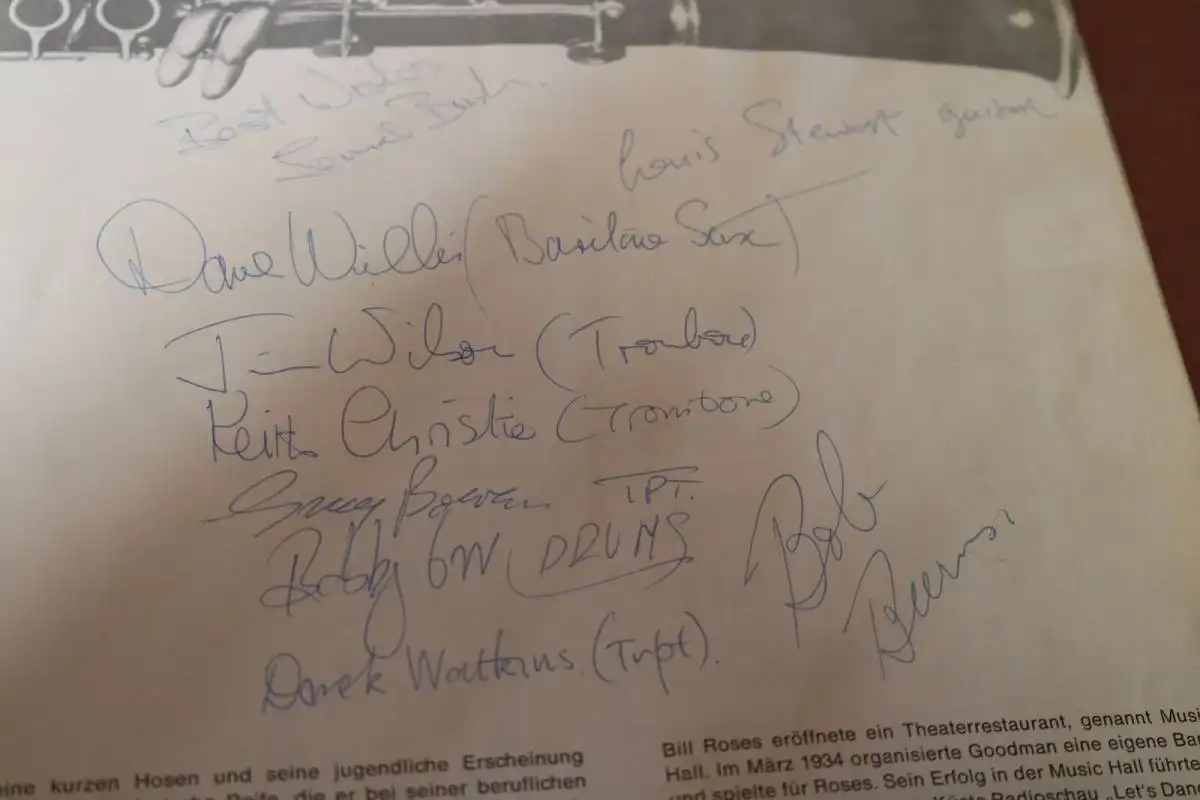 Best Wishes
Louis Stewart guitar
Dave Willis (Baritone Sax)
Jim Wilson (Trombone)
Keith Christie (Trombone)
Greg Bowen TPT.
Bobby Orr DRUMS
Bob Burns
Derek Watkins. (Trpt).
eine kurzen Hosen und seine jugendliche Erscheinung
die er bei seiner beruflichen
Bill Roses eröffnete ein Theaterrestaurant, genannt Musi
Hall. Im März 1934 organisierte Goodman eine eigene Ba
und spielte für Roses. Sein Erfolg in der Music Hall führte
Radioschau „Let's Dan